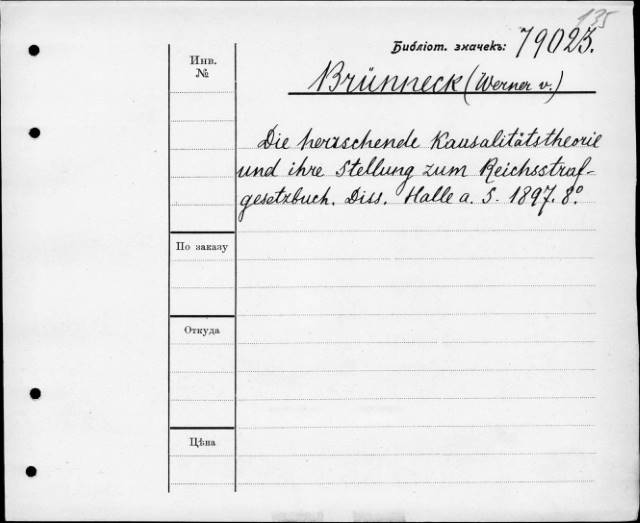 135
Библіот. значекъ: 79025.
Инв.
№
Brünneck (Werner v.)
Die herrschende Kausalitätstheorie
und ihre Stellung zum Reichsstraf-
gesetzbuch. Diss. Halle a. S. 1897. 8º.
По заказу
Откуда
Цѣна